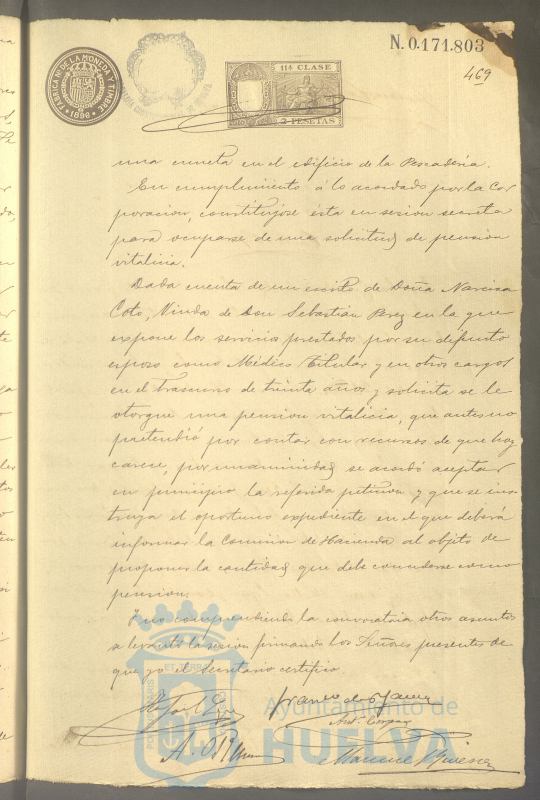 N. 0.171.803
469
FABRICA Nal DE LA MONEDA Y TIMBRE
1896
11ª CLASE
2 PESETAS
una caseta en el edificio de la Pescaderia.
En cumplimiento á lo acordado por la Cor
poracion, constituyose ésta en sesion secreta
para ocuparse de una solicitud de pension
vitalicia.
Dada cuenta de un escrito de Doña Narcisa
Coto, Viuda de Don Sebastian Perez en la que
expone los servicios prestados por su difunto
esposo como Médico titular y en otros cargos
en el trascurso de treinta años y solicita se le
otorgue una pension vitalicia, que antes no
pretendió por contar con recursos de que hoy
carece, por unanimidad se acordó aceptar
en principio la referida peticion y que se ins
truya el oportuno expediente en el que deberá
informar la Comision de Hacienda al objeto de
proponer la cantidad que debe concederse como
pension.
Y no comprendiendo la convocatoria otros asuntos
se levantó la sesion firmando los Señores presentes de
que yo el Secretario certifico.
PORTUS MARIS ET TERRAE
Ayuntamiento de
HUELVA